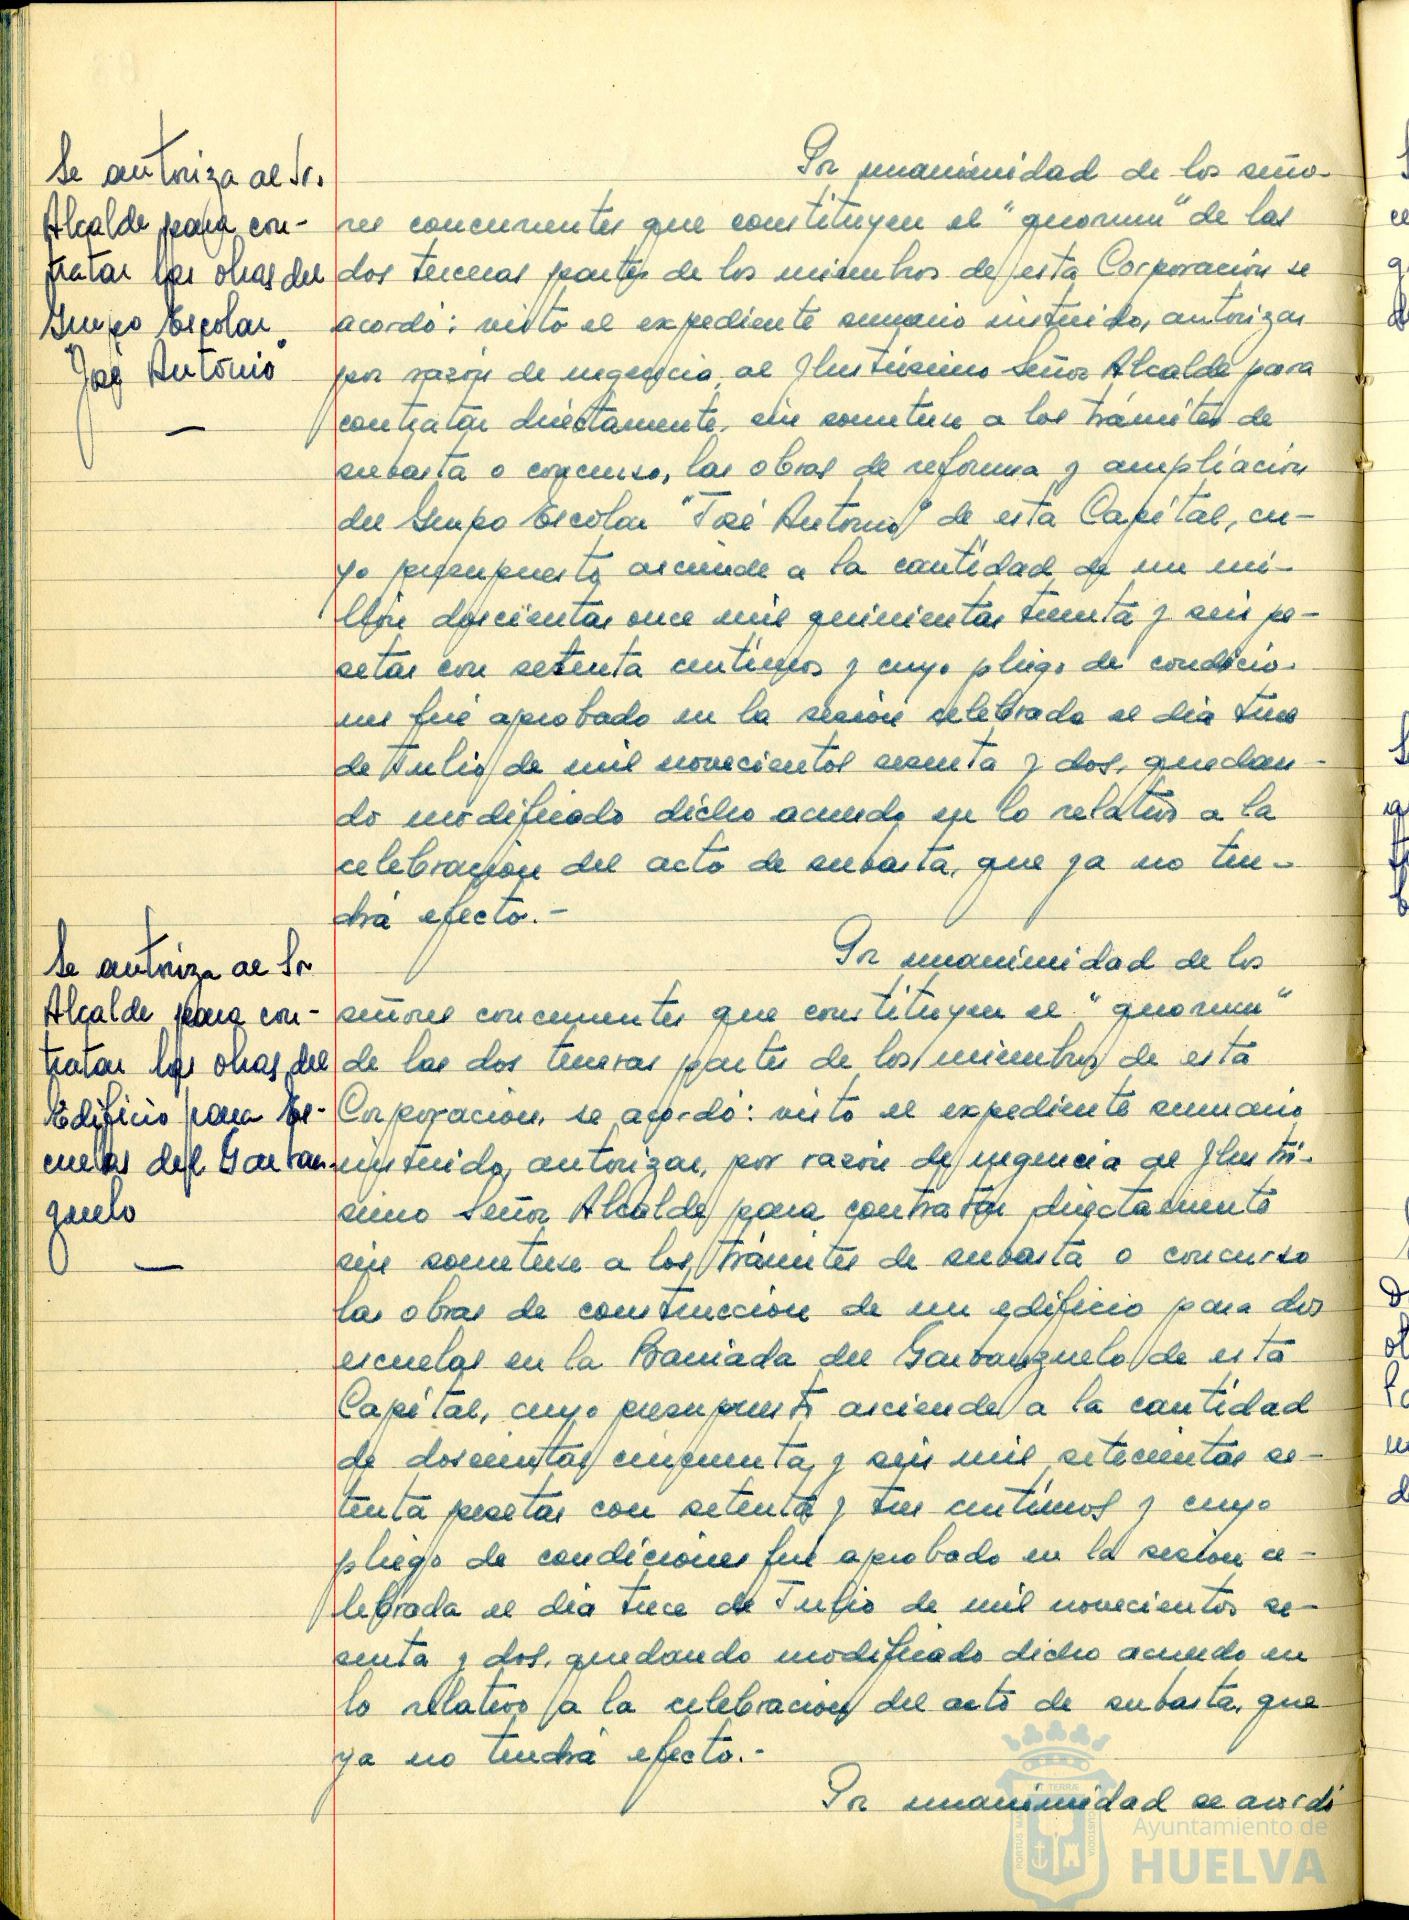 Se autoriza al Sr.
Alcalde para con-
tratar las obras del
Grupo Escolar
"José Antonio"
Por unanimidad de los seño-
res concurrentes que constituyen el "quorum" de las
dos terceras partes de los miembros de esta Corporación se
acordó: visto el expediente sumario instruido, autorizar
por razón de urgencia, al Ilustrísimo Señor Alcalde para
contratar directamente, sin someterse a los trámites de
subasta o concurso, las obras de reforma y ampliación
del Grupo Escolar "José Antonio" de esta Capital, cu-
yo presupuesto asciende a la cantidad de un mi-
llón doscientas once mil quinientas treinta y seis pe-
setas con setenta centimos y cuyo pliego de condicio-
nes fué aprobado en la sesión celebrada el día trece
de Julio de mil novecientos sesenta y dos, quedan-
do modificado dicho acuerdo en lo relativo a la
celebración del acto de subasta, que ya no ten-
drá efecto.-
Se autoriza al Sr
Alcalde para con-
tratar las obras del
Edificio para Es-
cuelas del Garban-
zuelo
Por unanimidad de los
señores concurrentes que constituyen el "quorum"
de las dos terceras partes de los miembros de esta
Corporación, se acordó: visto el expediente sumario
instruido, autorizar, por razón de urgencia al Ilustrí-
simo Señor Alcalde para contratar directamente
sin someterse a los trámites de subasta o concurso
las obras de construcción de un edificio para dos
escuelas en la Barriada del Garbanzuelo de esta
Capital, cuyo presupuesto asciende a la cantidad
de doscientas cincuenta y seis mil setecientas se-
tenta pesetas con setenta y tres centimos y cuyo
pliego de condiciones fué aprobado en la sesion ce-
lebrada el día trece de Julio de mil novecientos se-
senta y dos, quedando modificado dicho acuerdo en
lo relativo a la celebración del acto de subasta, que
ya no tendrá efecto.-
Por unanimidad se acordó
Ayuntamiento de
HUELVA